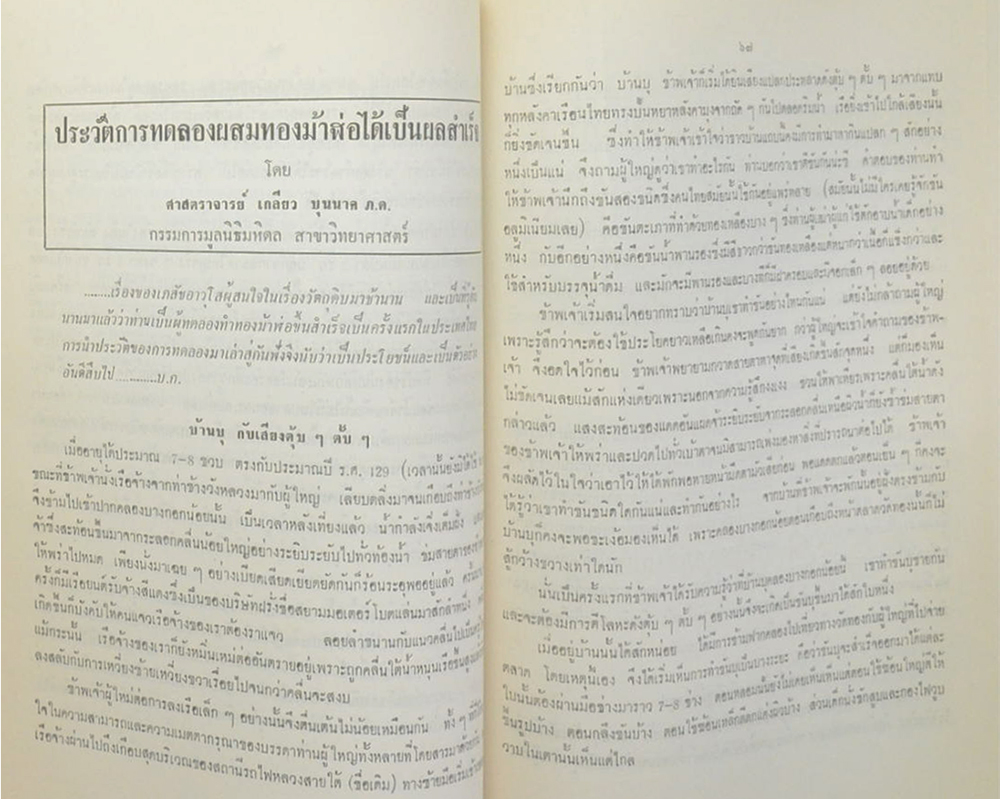 ประวัติการทดลองผสมทองม้าฬ่อได้เป็นผลสำเร็จ
โดย
ศาสตราจารย์ เกลียว บุนนาค ภ.ด.
กรรมการมูลนิธิมหิดล สาขาวิทยาศาสตร์
.........เรื่องของเภสัชอาวุโสผู้สนใจในเรื่องวัตถุดิบมาช้านาน และเป็นที่รู้กัน
นานมาแล้วว่าท่านเป็นผู้ทดลองทำทองม้าฬ่อขึ้นสำเร็จเป็นครั้งแรกในประเทศไทย
การนำประวัติของการทดลองมาเล่าสู่กันฟังจึงนับว่าเป็นประโยชน์และเป็นตัวอย่าง
อันดีสืบไป ...........บ.ก.
บ้านบุ กับเสียงตุ้บ ๆ ตั้บ ๆ
เมื่ออายุได้ประมาณ 7-8 ขวบ ตรงกับประมาณปี ร.ศ. 129 (เวลานั้นยังมิได้ใช้
ขณะที่ข้าพเจ้านั่งเรือจ้างจากท่าช้างวังหลวงมากับผู้ใหญ่ เลียบตลิ่งมาจนเกือบถึงท่าช้าง
จึงข้ามไปเข้าปากคลองบางกอกน้อยนั้น เป็นเวลาหลังเที่ยงแล้ว น้ำกำลังเจิ่งเต็มฝั่ง
จ้าซึ่งสะท้อนขึ้นมาจากระลอกคลื่นน้อยใหญ่อย่างระยิบระยับไปทั่วท้องน้ำ ข่มสายตาของ
ให้พร่าไปหมด เพียงนั่งมาเฉย ๆ อย่างเบียดเสียดเยียดยัดกันก็ร้อนระอุพออยู่แล้ว
ครั้งก็มีเรือยนต์รับจ้างสีแดงซึ่งเป็นของบริษัทฝรั่งชื่อสยามมอเตอร์โบตแล่นมาสักลำหนึ่ง
เกิดขึ้นก็บังคับให้คนแจวเรือจ้างของเราต้องราแจว ลอยลำขนานกับแนวคลื่นไปเป็นครู่
แม้กระนั้น เรือจ้างของเราก็ยังหมิ่นเหม่ต่ออันตรายอยู่เพราะถูกคลื่นใต้น้ำหนุนเรือขึ้นสูง
ลงสลับกับการเหวี่ยงซ้ายเหวี่ยงขวาเรื่อยไปจนกว่าคลื่นจะสงบ
ข้าพเจ้าผู้ใหม่ต่อการลงเรือเล็ก ๆ อย่างนั้นจึงตื่นเต้นไม่น้อยเหมือนกัน ทั้ง ๆ ที่
ใจในความสามารถและความเมตตากรุณาของบรรดาท่านผู้ใหญ่ทั้งหลายที่โดยสารมาด้วยกัน
เรือจ้างผ่านไปถึงเกือบสุดบริเวณของสถานีรถไฟหลวงสายใต้ (ชื่อเดิม) ทางซ้ายมือเริ่มเข้า
๖๘
บ้านซึ่งเรียกกันว่า บ้านบุ ข้าพเจ้าก็เริ่มได้ยินเสียงแปลกประหลาดดังตุ้บ ๆ ตั้บ ๆ มาจากแทบ
ทุกหลังคาเรือนไทยทรงปั้นหยาหลังคามุงจากถัด ๆ กันไปตลอดริมน้ำ เรือยิ่งเข้าไปใกล้เสียงนั้น
ก็ยิ่งชัดเจนขึ้น ซึ่งทำให้ข้าพเจ้าเข้าใจว่าชาวบ้านแถบนั้นคงทำมาหากินแปลก ๆ สักอย่าง
หนึ่งเป็นแน่ จึงถามผู้ใหญ่ดูว่าเขาทำอะไรกัน ท่านบอกว่าเขาตีขันกันน่ะซี คำตอบของท่านทำ
ให้ข้าพเจ้านึกถึงขันสองชนิดซึ่งคนไทยสมัยนั้นใช้กันอยู่แพร่หลาย (สมัยนั้นไม่มีใครเคยรู้จักขัน
อลูมิเนียมเลย) คือขันตะเภาที่ทำด้วยทองเหลืองบาง ๆ ซึ่งท่านผู้เฒ่าผู้แก่ใช้ตักอาบน้ำเด็กอย่าง
หนึ่ง กับอีกอย่างหนึ่งคือขันน้ำพานรองซึ่งมีสีขาวกว่าขันทองเหลืองแต่หนากว่าเนื้อก็แข็งกว่าและ
ใช้สำหรับบรรจุน้ำดื่ม และมักจะมีพานรองและบางทีก็มีฝาครอบและมีจอกเล็ก ๆ ลอยอยู่ด้วย
ข้าพเจ้าเริ่มสนใจอยากทราบว่าบ้านบุเขาทำขันอย่างไหนกันแน่ แต่ยังไม่กล้าถามผู้ใหญ่
เพราะรู้สึกว่าจะต้องใช้ประโยคยาวเหลือเกินคงจะพูดกันยาก กว่าผู้ใหญ่จะเข้าใจคำถามของข้าพ-
เจ้า จึงอดใจไว้ก่อน ข้าพเจ้าพยายามกวาดสายตาหาจุดที่เสียงเกิดขึ้นสักจุดหนึ่ง แต่ก็มองเห็น
ไม่ชัดเจนเลยแม้สักแห่งเดียวเพราะนอกจากความรู้สึกงงงง ชวนให้พาเหียรเพราะคลื่นใต้น้ำดัง
กล่าวแล้ว แสงสะท้อนของแดดอันแผดจ้าระยิบระยับจากระลอกคลื่นเหนือผิวน้ำก็ยังซ้ำข่มสายตา
ของข้าพเจ้าให้พร่าและปวดไปทั่วเบ้าตาจนมิสามารถเพ่งมองหาสิ่งที่ปรารถนาต่อไปได้ ข้าพเจ้า
จึงผลัดไว้ในใจว่าเอาไว้ให้ได้พักพอหายหน้ามืดตามัวเสียก่อน พอแดดตกแล้วตอนเย็น ๆ ก็คงจะ
ได้รู้ว่าเขาทำขันชนิดใดกันแน่และทำกันอย่างไร จากบ้านที่ข้าพเจ้าจะพักนั้นอยู่ฝั่งตรงข้ามกับ
บ้านบุก็คงจะพอชะเง้อมองเห็นได้ เพราะคลองบางกอกน้อยตอนเกือบถึงหน้าตลาดวัดทองนั้นก็ไม่
สู้กว้างขวางเท่าใดนัก
นั่นเป็นครั้งแรกที่ข้าพเจ้าได้รับความรู้ว่าที่บ้านบุคลองบางกอกน้อยนี้ เขาทำขันบุขายกัน
และจะต้องมีการตีโลหะดังตุ้บ ๆ ตั้บ ๆ อย่างนั้นจึงจะเกิดเป็นขันบุขึ้นมาได้สักใบหนึ่ง
เมื่ออยู่บ้านนั้นได้สักหน่อย ได้มีการข้ามฟากคลองไปเที่ยวทางวัดทองกับผู้ใหญ่ที่ไปจ่าย
ตลาด โดยเหตุนี้เอง จึงได้เริ่มเห็นการทำขันบุเป็นบางระยะ คือว่าขันบุจะสำเร็จออกมาได้แต่ละ
ใบนั้นต้องผ่านมือช่างมาราว 7-8 ช่าง ตอนหลอมนั้นยังไม่เคยเห็นเห็นแต่ตอนใช้ฆ้อนใหญ่ตีให้
ขึ้นรูปบ้าง ตอนกลึงขันบ้าง ตอนใช้ฆ้อนเหล็กตีตกแต่งผิวบ้าง ส่วนเด็กนั่งชักสูบและกองไฟวูบ
วาบในเตานั้นเห็นแต่ไกล